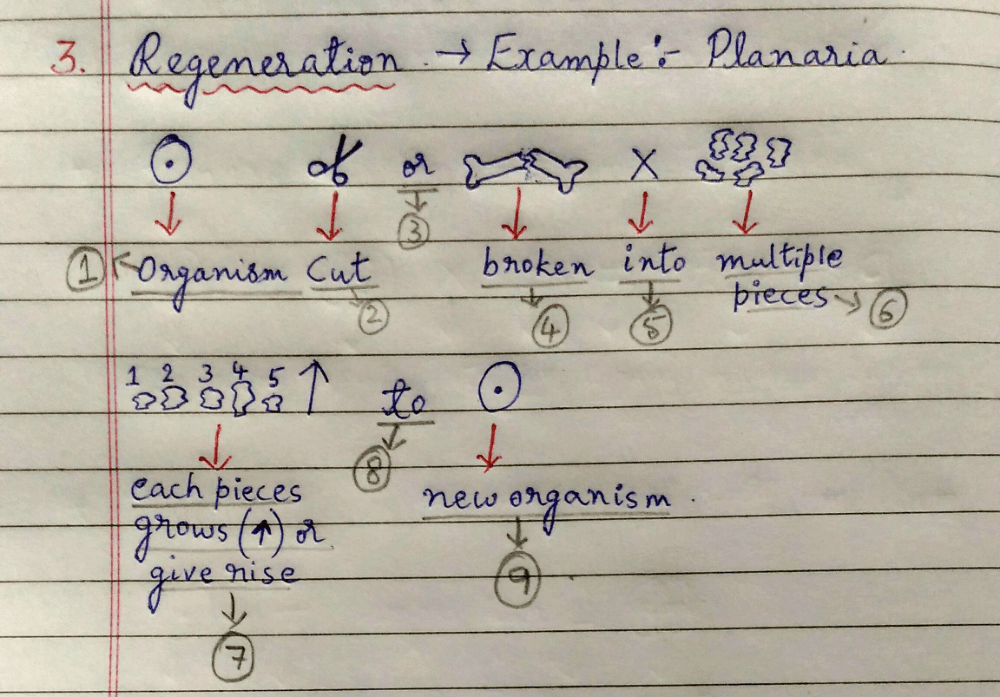 3. Regeneration. → Example :- Planaria.
or X
③
① Organism Cut broken into multiple
② ④ ⑤ pieces → ⑥
1 2 3 4 5 ↑ to
⑧
each pieces new organism.
grows (↑) or
give rise
⑨
⑦